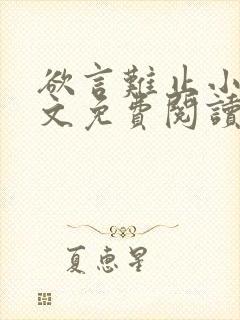 欲言難止小
文免費閱讀
夏惠星